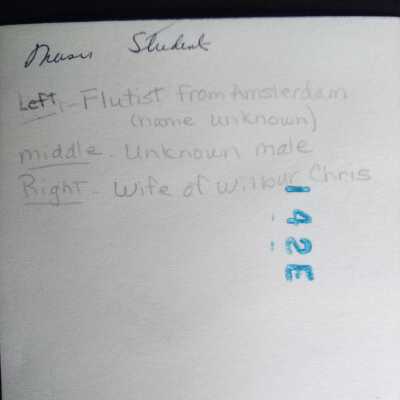 Music Student
Left - Flutist from Amsterdam
(name unknown)
middle - Unknown male
Right - Wife of Wilbur Chris
142E